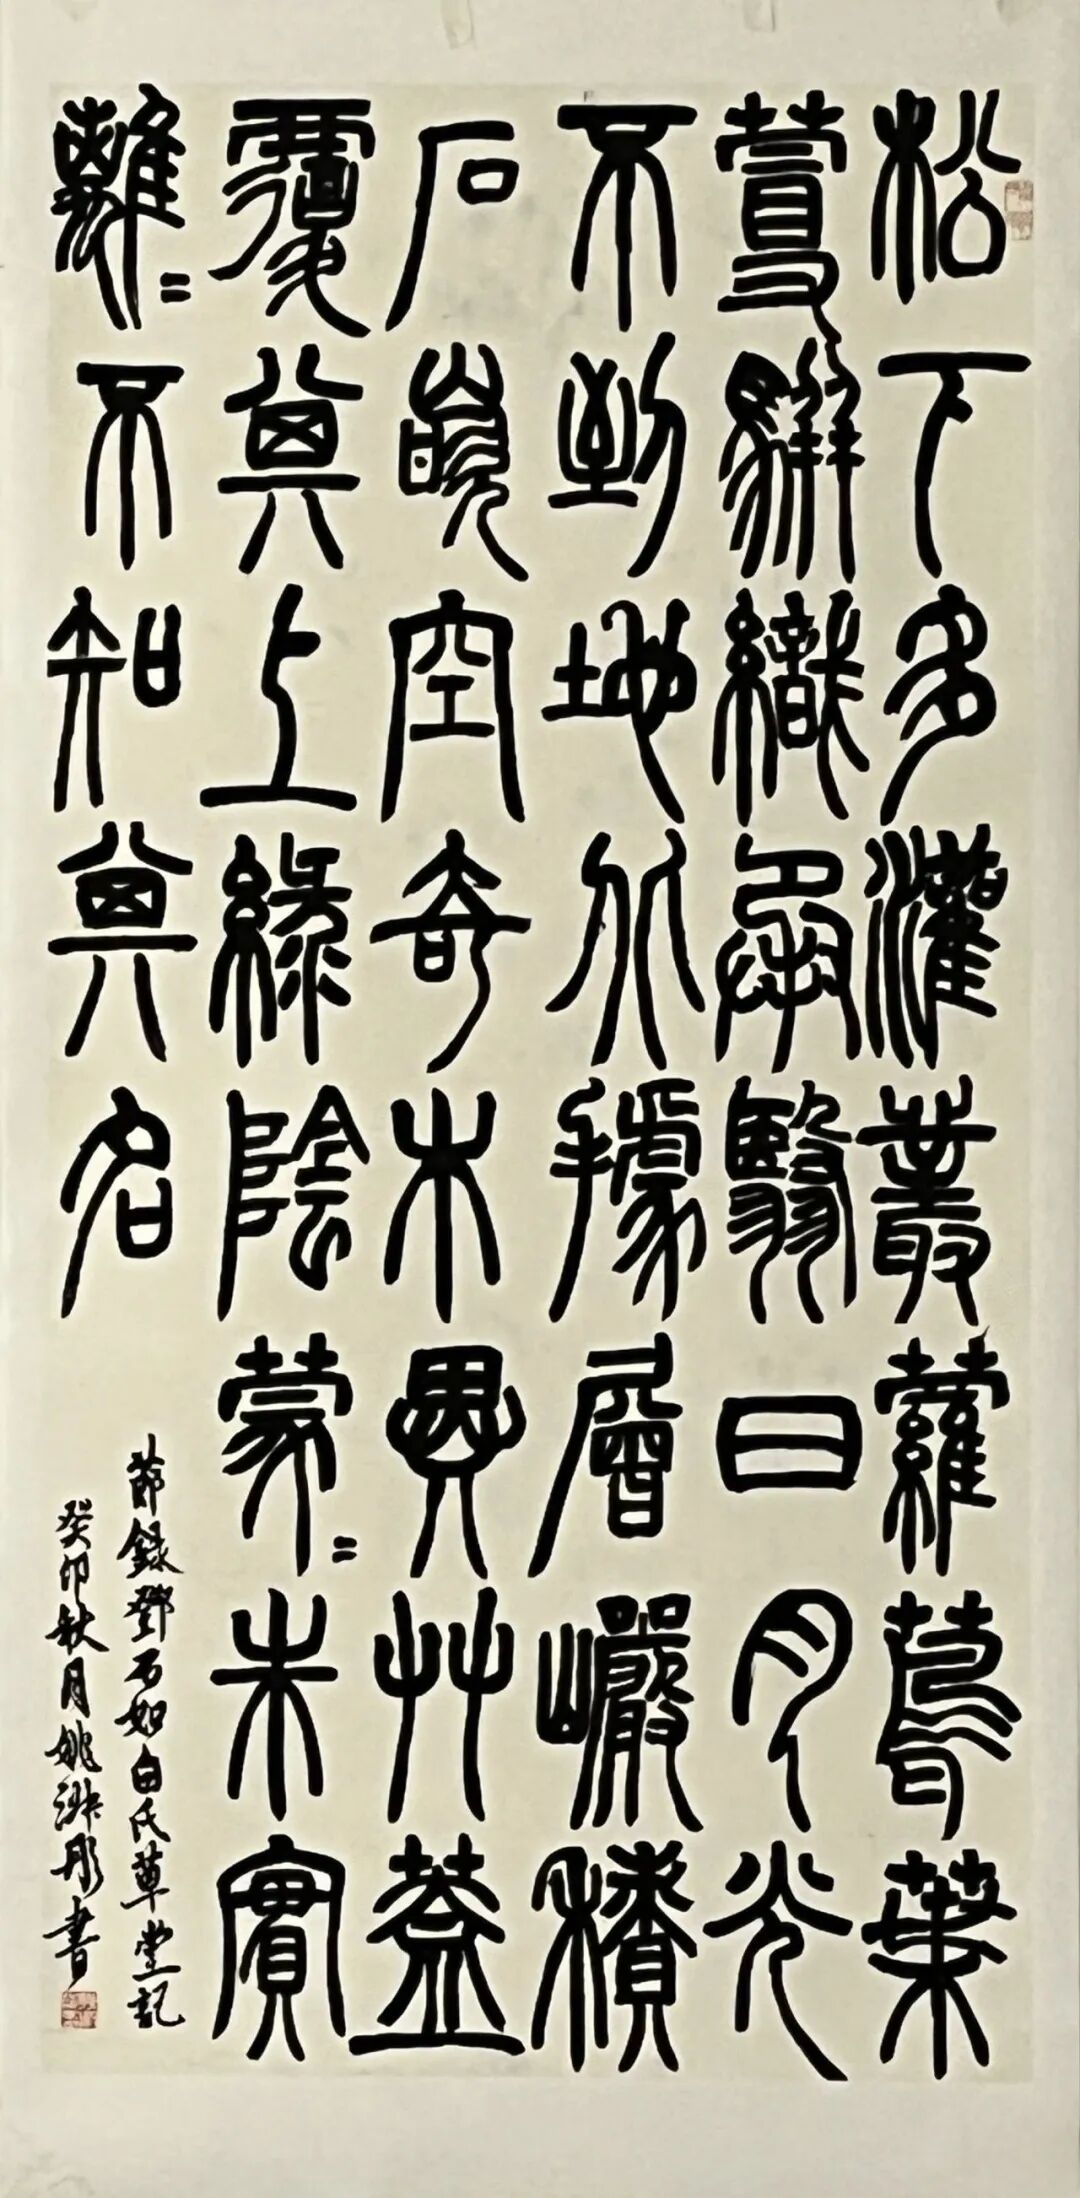 松下多灌叢蘿蔦葉
蔓駢織承翳日月光
不到地北據層巖積
石嵌空奇木異艸蓋
覆其上綠陰蒙〻朱實
離〻不知其名
節錄鄧石如白氏草堂記
癸卯秋月姚彤書